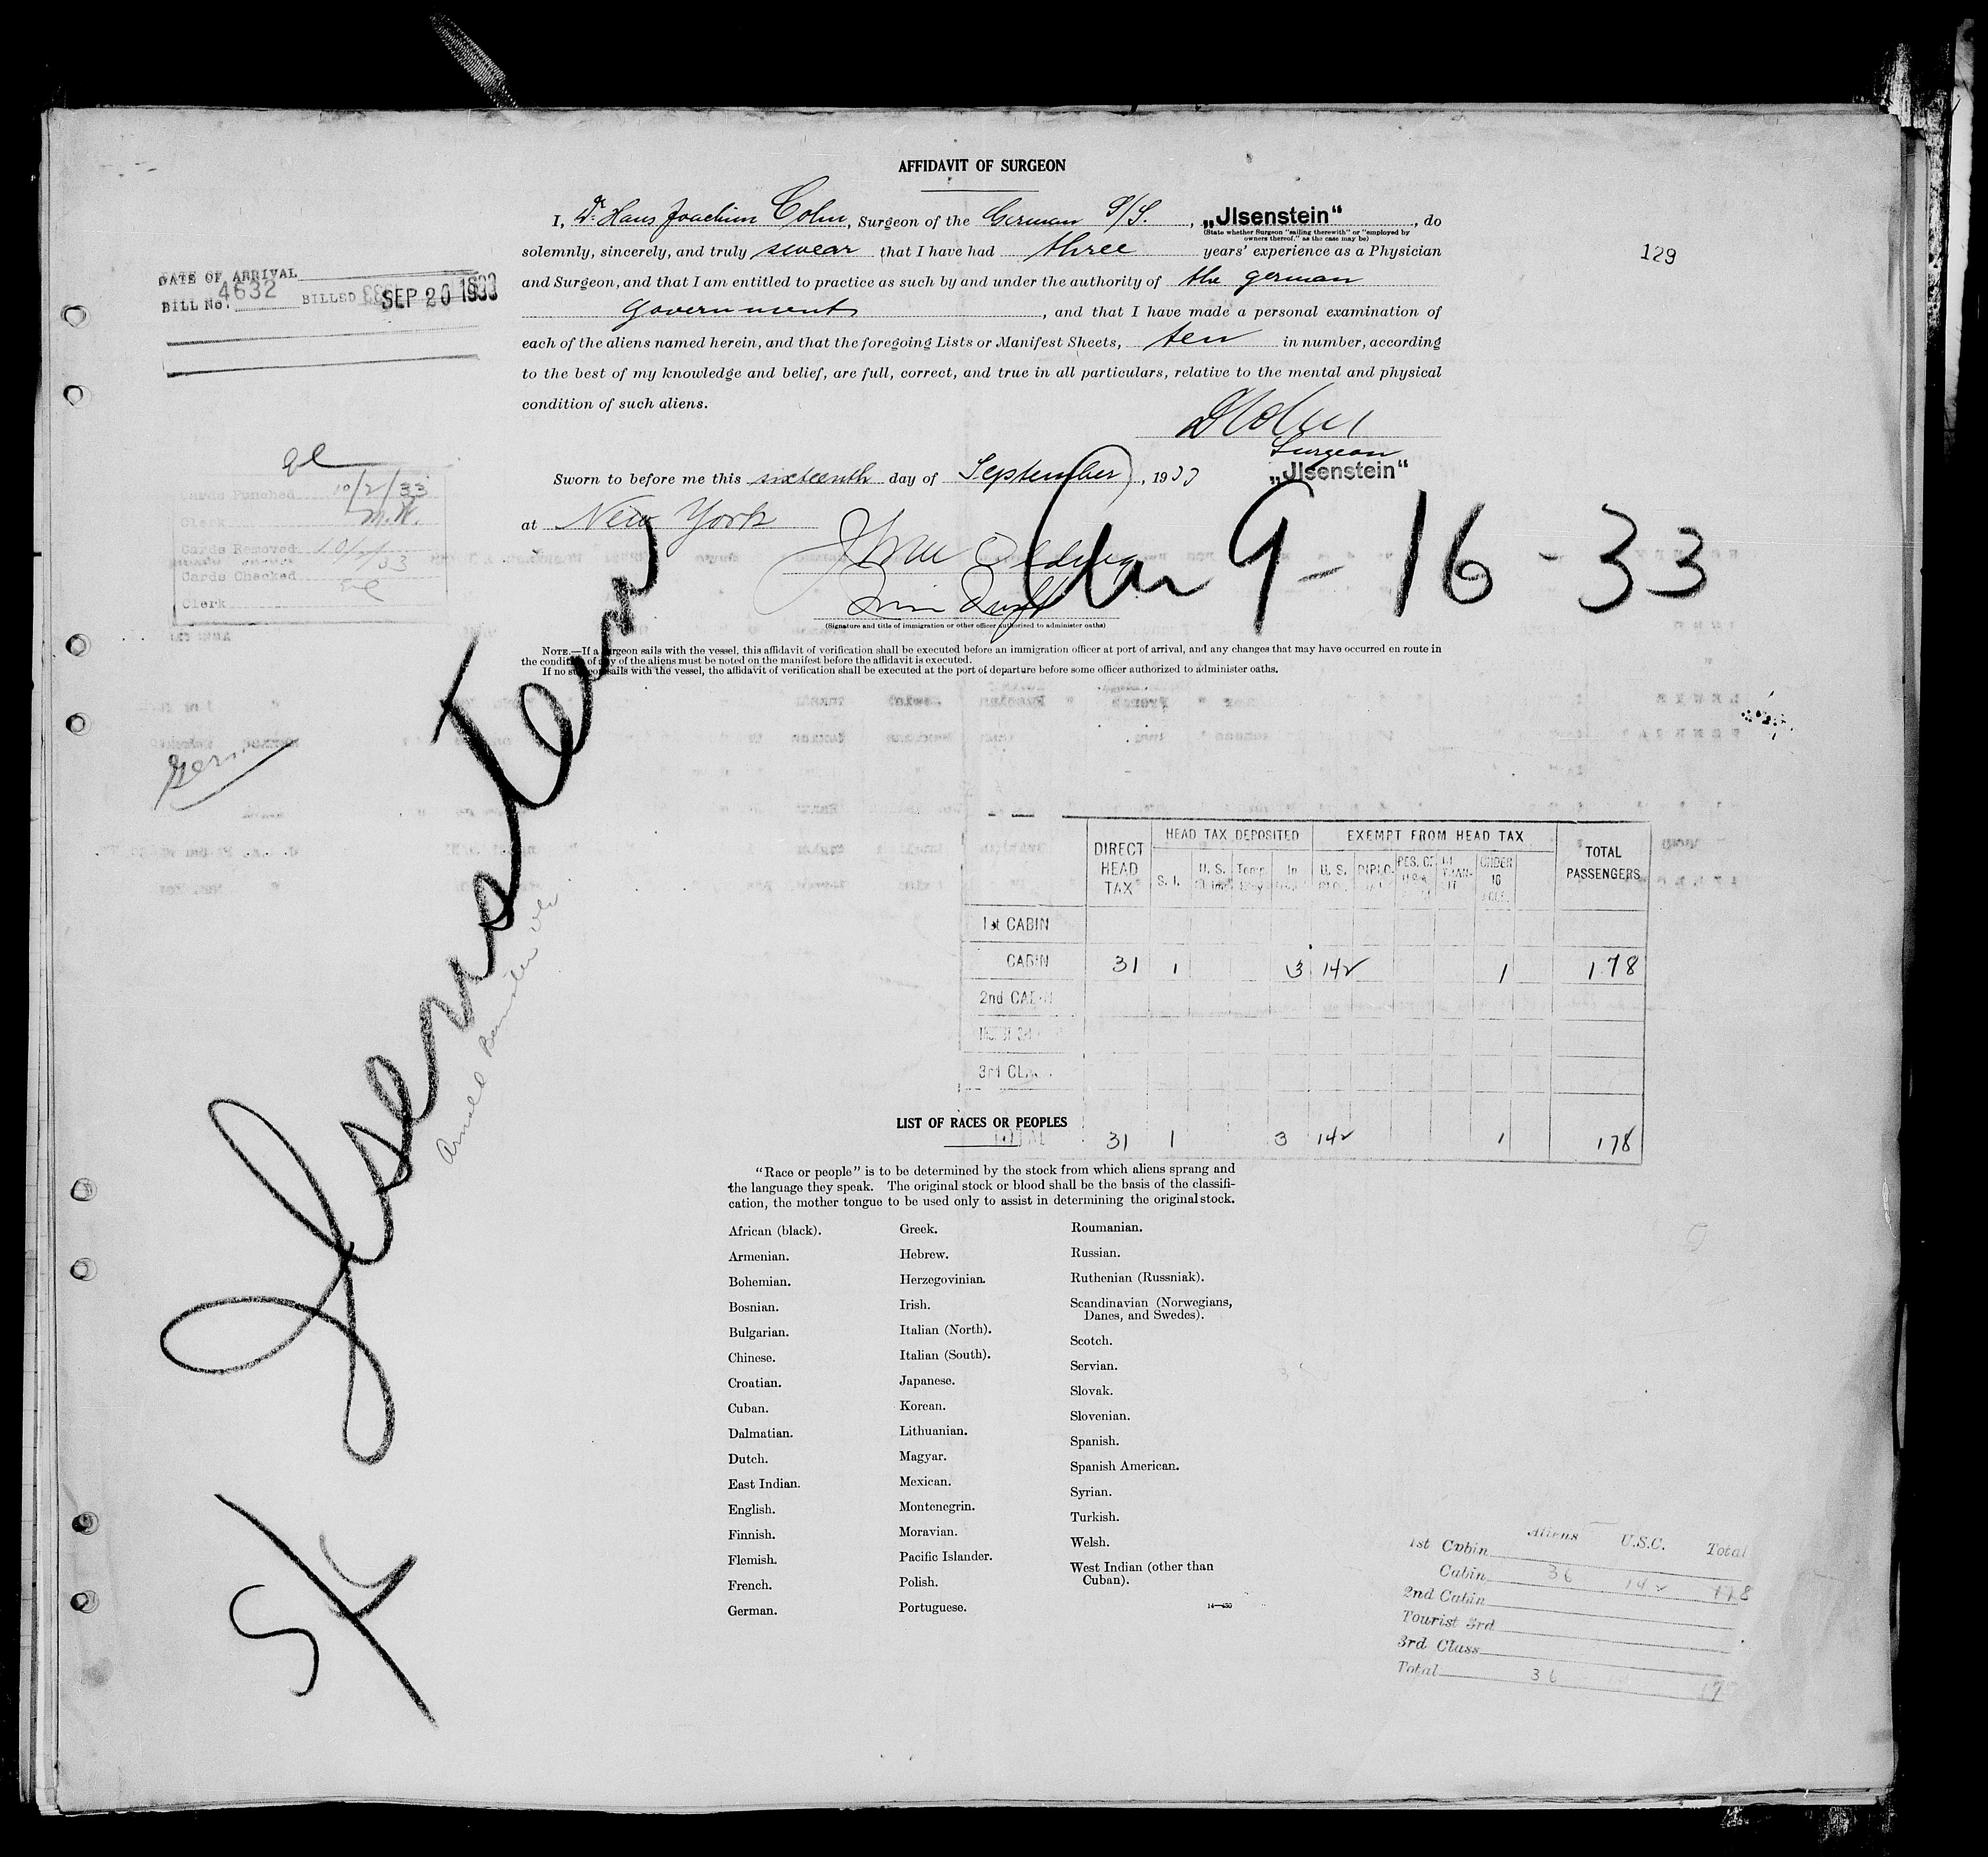 AFFIDAVIT OF SURGEON
I, Dr. Hans Joachim Cohn, Surgeon of the German S/S. , „JIsenstein“ , do
(State whether Surgeon "sailing therewith" or "employed by
owners thereof," as the case may be)
solemnly, sincerely, and truly swear that I have had three years' experience as a Physician
and Surgeon, and that I am entitled to practice as such by and under the authority of the german
government , and that I have made a personal examination of
each of the aliens named herein, and that the foregoing Lists or Manifest Sheets, ten in number, according
to the best of my knowledge and belief, are full, correct, and true in all particulars, relative to the mental and physical
condition of such aliens.
129
DATE OF ARRIVAL
BILL No. 4632 BILLED SEP 20 1933
Surgeon
„JIsenstein“
Sworn to before me this sixteenth day of September , 1933
at New York
(Signature and title of immigration or other officer authorised to administer oaths)
9-16-33
Cards Punched 10/2/33
Clerk M.K.
Cards Removed
Cards Checked
Clerk
NOTE.—If a surgeon sails with the vessel, this affidavit of verification shall be executed before an immigration officer at port of arrival, and any changes that may have occurred en route in
the condition of any of the aliens must be noted on the manifest before the affidavit is executed.
If no surgeon sails with the vessel, the affidavit of verification shall be executed at the port of departure before some officer authorized to administer oaths.
Germ
Ilsenstein
SK
DIRECT HEAD TAX HEAD TAX DEPOSITED EXEMPT FROM HEAD TAX TOTAL PASSENGERS
S. I. U. S. Temp Stay In U. S. DIPLO. RES. OF U.S.A. IN TRANSIT UNDER 16
1st CABIN
CABIN 31 1 3 142 1 178
2nd CABIN
3rd CLASS
TOTAL 31 1 3 142 1 178
LIST OF RACES OR PEOPLES
"Race or people" is to be determined by the stock from which aliens sprang and
the language they speak. The original stock or blood shall be the basis of the classifi-
cation, the mother tongue to be used only to assist in determining the original stock.
African (black).
Armenian.
Bohemian.
Bosnian.
Bulgarian.
Chinese.
Croatian.
Cuban.
Dalmatian.
Dutch.
East Indian.
English.
Finnish.
Flemish.
French.
German.
Greek.
Hebrew.
Herzegovinian.
Irish.
Italian (North).
Italian (South).
Japanese.
Korean.
Lithuanian.
Magyar.
Mexican.
Montenegrin.
Moravian.
Pacific Islander.
Polish.
Portuguese.
Roumanian.
Russian.
Ruthenian (Russniak).
Scandinavian (Norwegians,
Danes, and Swedes).
Scotch.
Servian.
Slovak.
Slovenian.
Spanish.
Spanish American.
Syrian.
Turkish.
Welsh.
West Indian (other than
Cuban).
14—436
Aliens U.S.C. Total
1st Cabin
Cabin 36 142 178
2nd Cabin
Tourist 3rd
3rd Class
Total 36